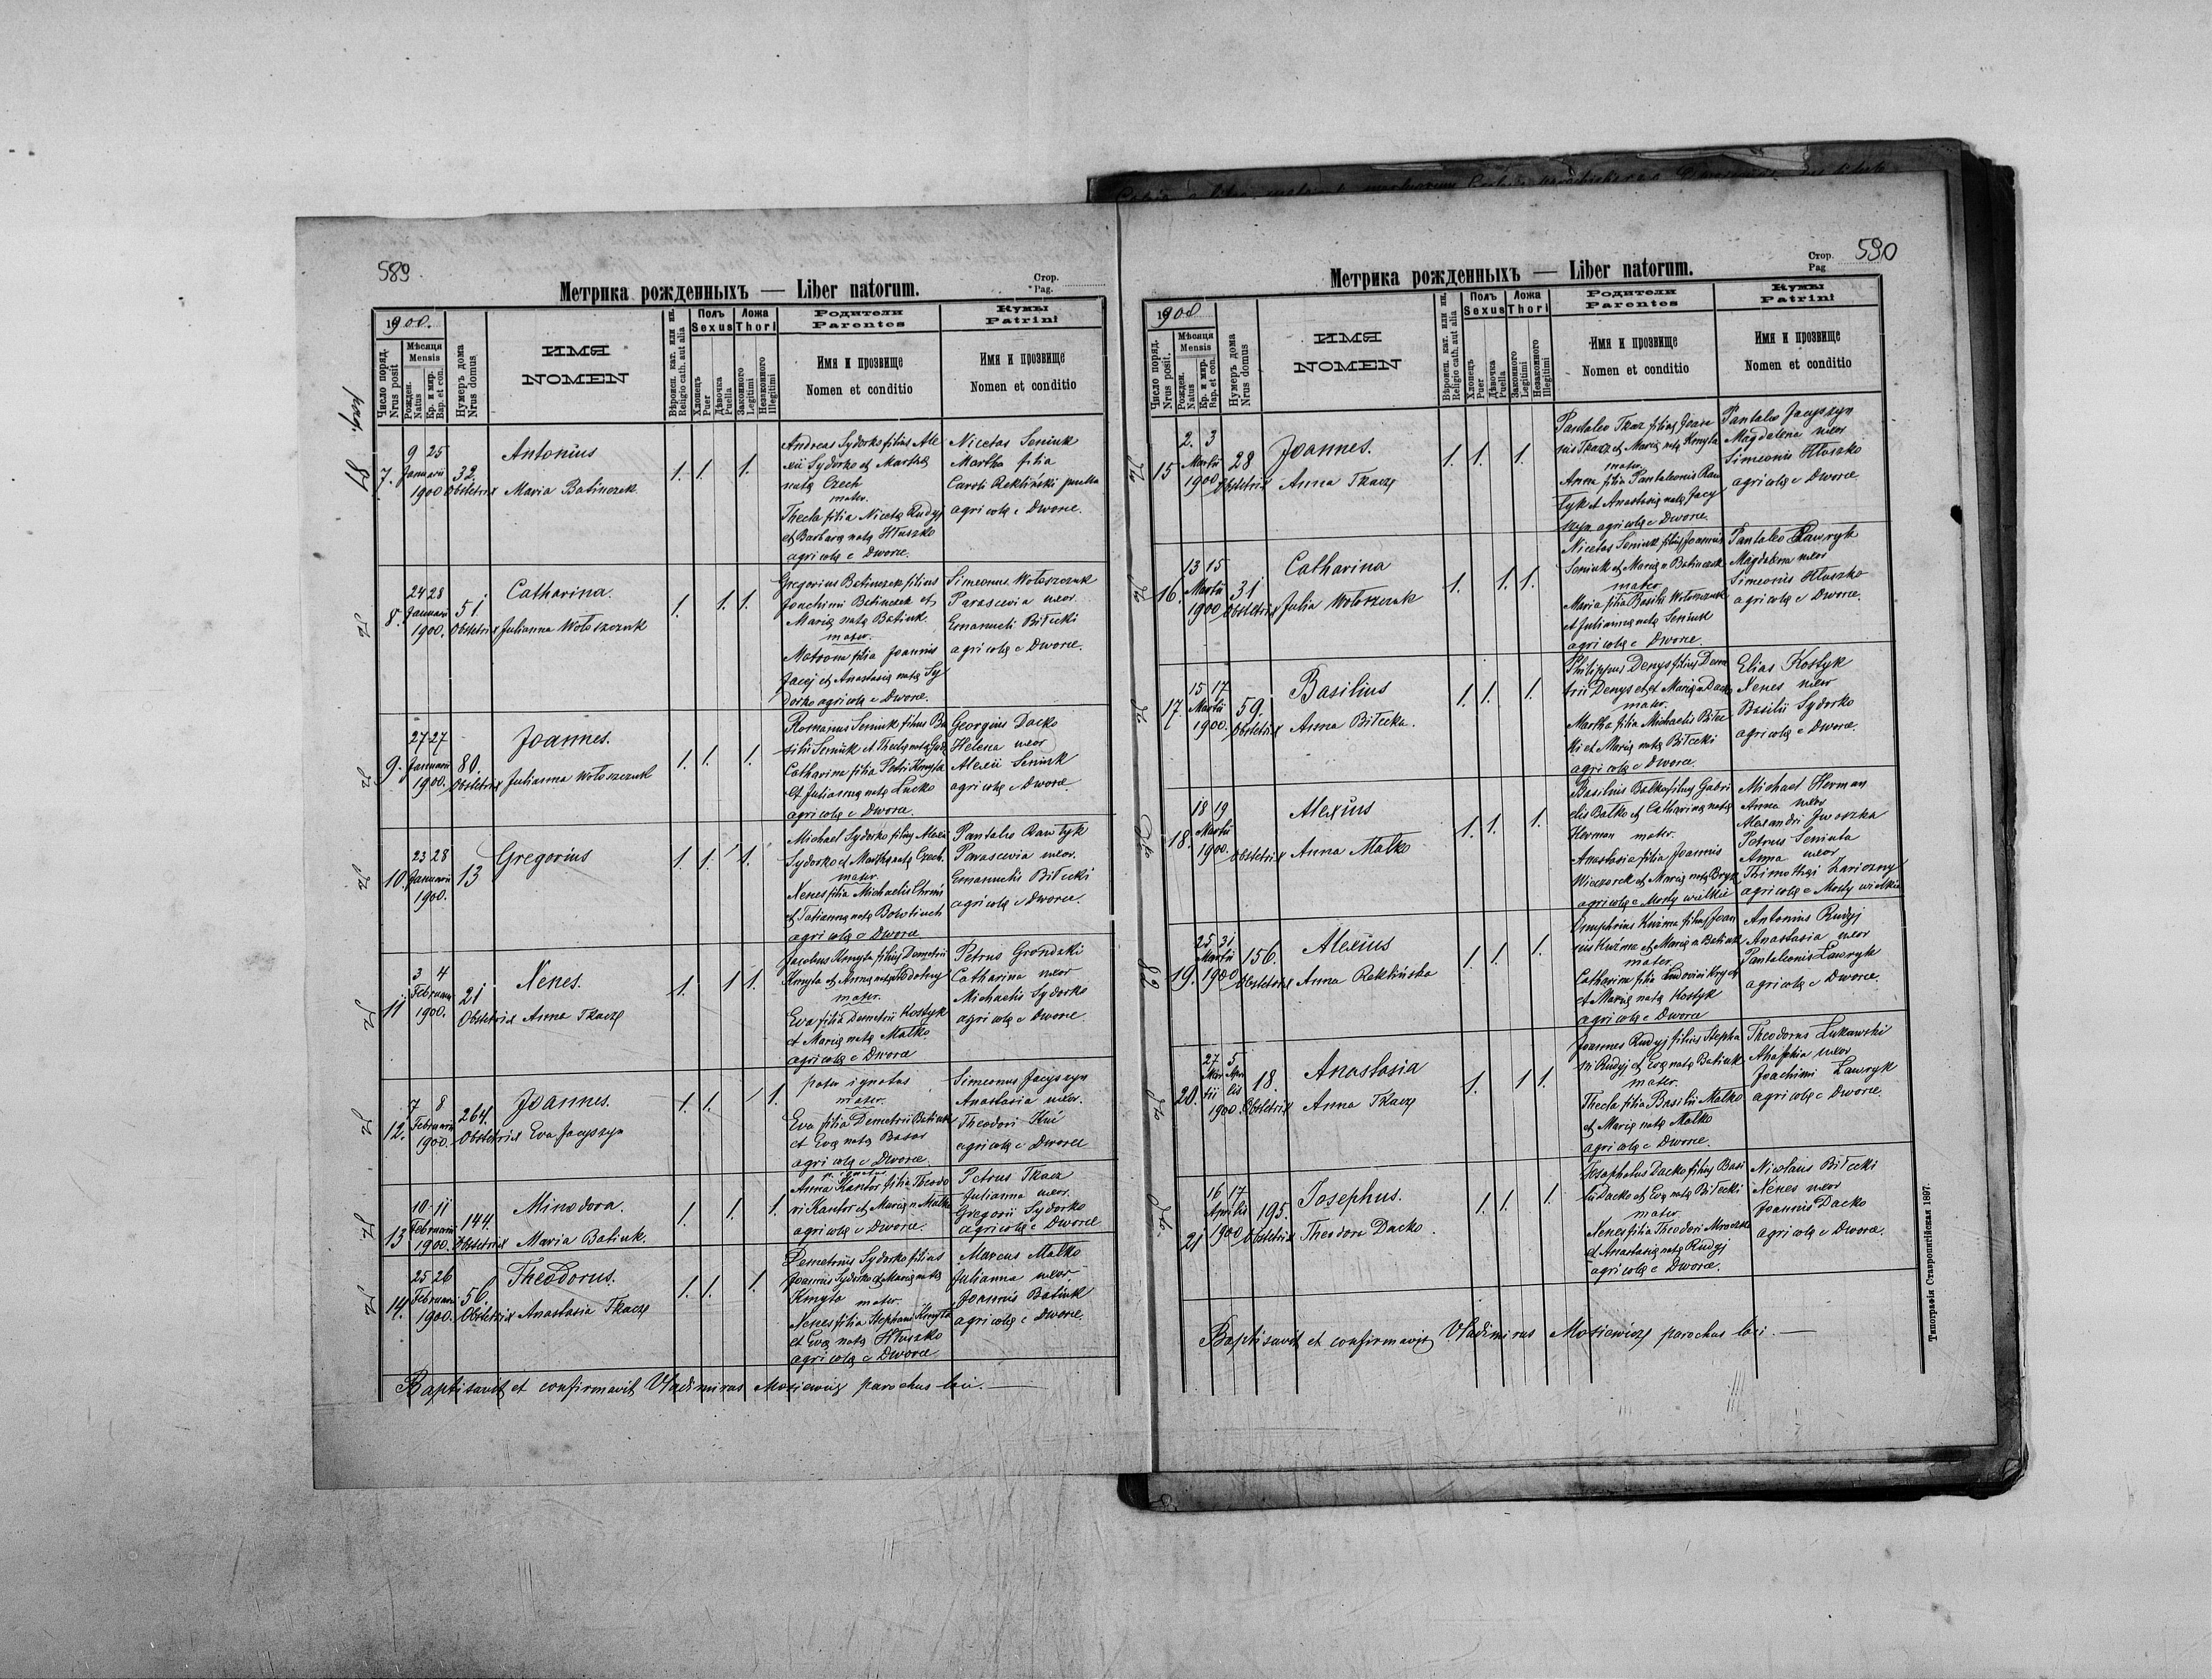 589.
Метрика рожденныхъ — Liber natorum.
Стор.
Pag.
1900.
Число поряд.
Nrus posit
Мѣсяця
Mensis
Рожден.
Natus
Кр. и мир.
Bap. et con.
Нумеръ дома
Nrus domus
ИМЯ
NOMEN
Вѣроисп. кат. или ин.
Religio cath. aut alia
Полъ
Sexus
Хлопецъ
Puer
Дѣвочка
Puella
Ложа
Thori
Законного
Legitimi
Незаконного
Illegitimi
Родители
Parentes
Имя и прозвище
Nomen et conditio
Кумы
Patrini
Имя и прозвище
Nomen et conditio
pag. 81
7. 9 25 Januarii 1900 32.
Antonius
Obstetrix Maria Batinczek
1. 1. 1.
Andreas Sydorko filius Ale
xii Sydorko et Martha
nata Czech
mater.
Thecla filia Nicetę Rudyj
et Barbarę natę Hłuszko
agricolę e Dworce.
Nicetas Seniuk
Martha filia
Caroli Rekliński puella
agricolę e Dworce.
8. 24 28 Januarii 1900. 51
Catharina.
Obstetrix Julianna Wołoszczuk
1. 1. 1.
Gregorius Batinczek filius
Joachimi Batinczek et
Marię natę Batiuk.
mater.
Matrona filia Joannis
Jacej et Anastasię natę Sy
dorko agricolę e Dworce.
Simeonus Wołoszczuk
Parascevia uxor
Emanueli Biłecki
agricolę e Dworce.
9. 27 27 Januarii 1900. 80.
Joannes.
Obstetrix Julianna Wołoszczuk
1. 1. 1.
Romanus Seniuk filius Ba
silii Seniuk et Theclę natę
Catharina filia Petri Kmyta
et Juliannę natę Lucko
agricolę e Dworce.
Georgius Dacko
Helena uxor
Alexii Seniuk
agricolę e Dworce.
10. 23 28 Januarii 1900. 13
Gregorius
1. 1. 1.
Michael Sydorko filius Alexii
Sydorko et Marthę natę Czech.
mater.
Xenes filia Michaelis
et Tatiannę natę
agricolę e Dworce
Pantaleo Pawłyk
Parascevia uxor.
Emanuelis Biłecki
agricolę e Dworce.
11 3 4 Februarii 1900. 21
Xenes.
Obstetrix Anna Tkaczę
1. 1 1.
Jacobus Kmyta filius Demetrii
Kmyta et Annę natę
mater.
Eva filia Demetrii Kostyk
et Marię natę Małko.
agricolę e Dworce
Petrus Grondzki
Catharina uxor
Michaelis Sydorko
agricolę e Dworce.
12. 7 8 Februarii 1900. 264.
Joannes.
Obstetrix Eva Jacyszyn
1. 1. 1.
pater ignotus
mater.
Eva filia Demetrii Batiuk
et Evę natę
agricolę e Dworce.
Simeonus Jacyszyn
Anastasia uxor.
Theodori
agricolę e Dworce
13 10 11 Februarii 1900. 144.
Minodora.
Obstetrix Maria Batiuk.
1. 1. 1.
p. ignotus
Anna Kantor filia Theodo
ri Kantor et Marię n Małko
agricolę e Dworce.
Petrus Tkacz
Julianna uxor.
Gregorii Sydorko
agricolę e Dworce
14. 25 26 Februarii 1900. 56.
Theodorus.
Obstetrix Anastasia Tkaczę
1. 1. 1.
Demetrius Sydorko filius
Joannis Sydorko et Marię natę
Kmyta mater.
Xenes filia Stephani Kmyta
et Evę natę Hłuszko
agricolę e Dworce
Marcus Małko
Julianna uxor.
Joannis Batiuk
agricolę e Dworce.
Baptisavit et confirmavit Vladimirus Mosiewicz parochus loci. —
590
Метрика рожденныхъ — Liber natorum.
Стор.
Pag
1900
Число поряд.
Nrus posit.
Мѣсяця
Mensis
Рожден.
Natus
Кр. и мир.
Bap. et con.
Нумеръ дома
Nrus domus
ИМЯ
NOMEN
Вѣроисп. кат. или ин.
Religio cath. aut alia
Полъ
Sexus
Хлопецъ
Puer
Дѣвочка
Puella
Ложа
Thori
Законного
Legitimi
Незаконного
Illegitimi
Родители
Parentes
Имя и прозвище
Nomen et conditio
Кумы
Patrini
Имя и прозвище
Nomen et conditio
15 2. 3 Martii 1900 28
Joannes.
Obstetrix Anna Tkaczę
1. 1. 1.
Pantaleo Tkacz filius Joan
nis Tkacz et Marię natę Kmyta
mater
Anna filia Pantaleonis Paw
łyk et Anastasię natę Jacy
szyn agricolę e Dworce.
Pantaleo Jacyszyn
Magdalena uxor
Simeonis Hłuszko
agricolę e Dworce
16. 13 15 Martii 1900 31
Catharina
Obstetrix Julia Wołoszczuk
1. 1. 1.
Nicetas Seniuk filius Joannis
Seniuk et Marię n Batinczek
mater
Maria filia Basilii Wołoszczuk
et Juliannę natę Seniuk
agricolę e Dworce
Pantaleo Ławryk
Magdalena uxor
Simeonis Hłuszko
agricolę e Dworce.
17. 15 17 Martii 1900. 59.
Basilius
Obstetrix Anna Biłecka.
1. 1. 1.
Philippus Denys filius Deme
trii Denys et Marię n Dacko
mater.
Martha filia Michaelis Biłec
ki et Marię natę Biłecki
agricolę e Dworce.
Elias Kostyk
Xenes uxor
Basilii Sydorko
agricolę e Dworce.
18. 18 19 Martii 1900.
Alexius
Obstetrix Anna Małko
1. 1. 1.
Basilius Batko filius Gabri
elis Batko et Catharinę natę
Herman mater.
Anastasia filia Joannis
Wieczorek et Marię natę
agricolę e Mosty wielkie
Michael Herman
Anna uxor
Alexandri
Petrus Seniuta
Anna uxor
Thimothei
agricolę e Mosty wielkie
82
19. 25 31 Martii 1900 156.
Alexius
Obstetrix Anna Reklińska
1. 1. 1.
Onuphrius Kuźma filius Joan
nis Kuźma et Marię n Batiuk
mater
Catharina filia Ludovici
et Marię natę Kostyk
agricolę e Dworce
Antonius Rudyj
Anastasia uxor
Pantaleonis Ławryk
agricolę e Dworce.
20. 27 5 Martii Aprilis 1900. 18.
Anastasia
Obstetrix Anna Tkaczę
1. 1 1.
Joannes Rudyj filius Stepha
ni Rudyj et Evę natę Batiuk
mater.
Thecla filia Basilii Małko
et Marię natę Małko
agricolę e Dworce.
Theodorus Łukawski
Ahaphia uxor
Joachimi Ławryk
agricolę e Dworce.
21 16 17 Aprilis 1900 195.
Josephus.
Obstetrix Theodora Dacko
1. 1. 1.
Josaphatus Dacko filius Basi
lii Dacko et Evę natę Biłecki
mater
Xenes filia Theodori Mroczko
et Anastasię natę Rudyj
agricolę e Dworce.
Nicolaus Biłecki
Xenes uxor
Joannis Dacko
agricolę e Dworce.
Baptisavit et confirmavit Vladimirus Mosiewicz parochus loci. —
Типографія Ставропигійская 1897.